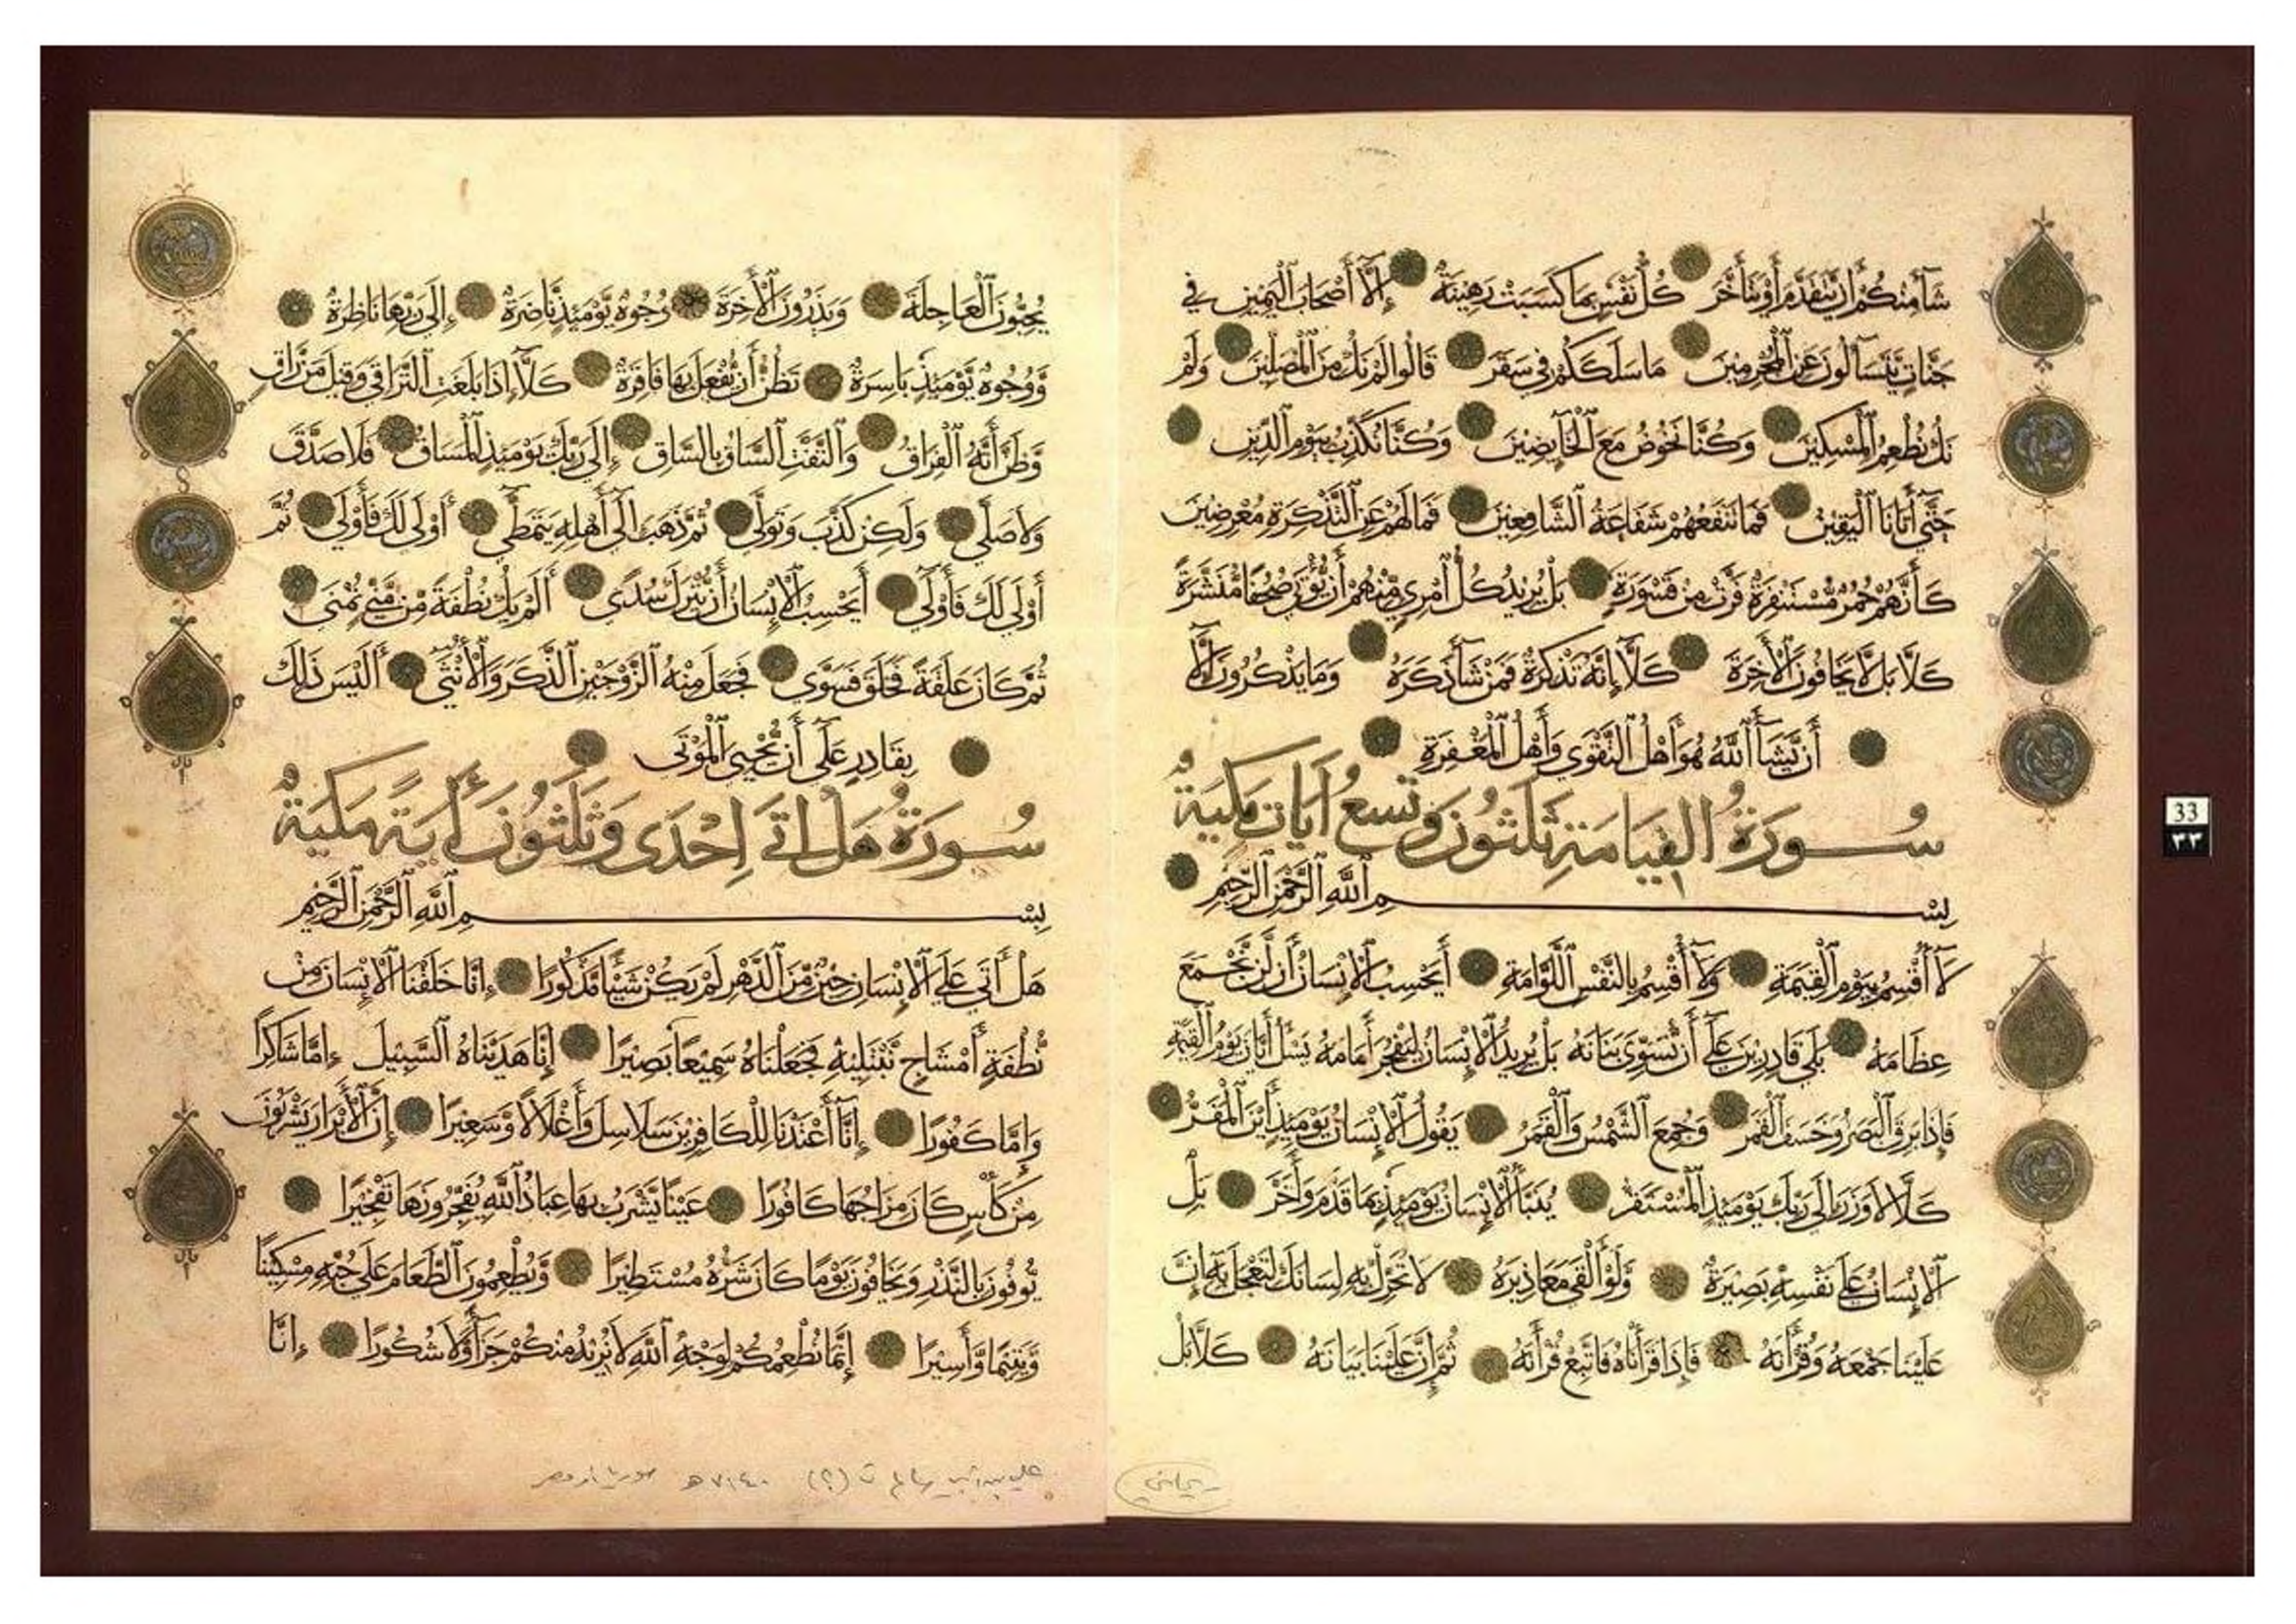 شَآءَ مِنكُمْ أَن يَتَقَدَّمَ أَوْ يَتَأَخَّرَ كُلُّ نَفْسٍ بِمَا كَسَبَتْ رَهِينَةٌ إِلَّا أَصْحَابَ الْيَمِينِ فِي
جَنَّاتٍ يَتَسَآءَلُونَ عَنِ الْمُجْرِمِينَ مَا سَلَكَكُمْ فِي سَقَرَ قَالُوا لَمْ نَكُ مِنَ الْمُصَلِّينَ وَلَمْ
نَكُ نُطْعِمُ الْمِسْكِينَ وَكُنَّا نَخُوضُ مَعَ الْخَآئِضِينَ وَكُنَّا نُكَذِّبُ بِيَوْمِ الدِّينِ
حَتَّى أَتَانَا الْيَقِينُ فَمَا تَنفَعُهُمْ شَفَاعَةُ الشَّافِعِينَ فَمَا لَهُمْ عَنِ التَّذْكِرَةِ مُعْرِضِينَ
كَأَنَّهُمْ حُمُرٌ مُّسْتَنفِرَةٌ فَرَّتْ مِن قَسْوَرَةٍ بَلْ يُرِيدُ كُلُّ امْرِئٍ مِّنْهُمْ أَن يُؤْتَى صُحُفًا مُّنَشَّرَةً
كَلَّا بَل لَّا يَخَافُونَ الْأَخِرَةَ كَلَّا إِنَّهُ تَذْكِرَةٌ فَمَن شَآءَ ذَكَرَهُ وَمَا يَذْكُرُونَ إِلَّا
أَن يَشَآءَ اللَّهُ هُوَ أَهْلُ التَّقْوَى وَأَهْلُ الْمَغْفِرَةِ
سُورَةُ الْقِيَامَةِ ثَلَثُونَ وَتِسْعُ آيَاتٍ مَكِّيَّةٌ
بِسْمِ اللَّهِ الرَّحْمَنِ الرَّحِيمِ
لَآ أُقْسِمُ بِيَوْمِ الْقِيَمَةِ وَلَآ أُقْسِمُ بِالنَّفْسِ اللَّوَّامَةِ أَيَحْسِبُ الْإِنْسَانُ أَن لَّن نَّجْمَعَ
عِظَامَهُ بَلَى قَادِرِينَ عَلَى أَن نُّسَوِّيَ بَنَانَهُ بَلْ يُرِيدُ الْإِنْسَانُ لِيَفْجُرَ أَمَامَهُ يَسْئَلُ أَيَّانَ يَوْمُ الْقِيَمَةِ
فَإِذَا بَرِقَ الْبَصَرُ وَخَسَفَ الْقَمَرُ وَجُمِعَ الشَّمْسُ وَالْقَمَرُ يَقُولُ الْإِنْسَانُ يَوْمَئِذٍ أَيْنَ الْمَفَرُّ
كَلَّا لَا وَزَرَ إِلَى رَبِّكَ يَوْمَئِذٍ الْمُسْتَقَرُّ يُنَبَّأُ الْإِنْسَانُ يَوْمَئِذٍ بِمَا قَدَّمَ وَأَخَّرَ بَلِ
الْإِنْسَانُ عَلَى نَفْسِهِ بَصِيرَةٌ وَلَوْ أَلْقَى مَعَاذِيرَهُ لَا تُحَرِّكْ بِهِ لِسَانَكَ لِتَعْجَلَ بِهِ إِنَّ
عَلَيْنَا جَمْعَهُ وَقُرْأَنَهُ فَإِذَا قَرَأْنَاهُ فَاتَّبِعْ قُرْأَنَهُ ثُمَّ إِنَّ عَلَيْنَا بَيَانَهُ كَلَّا بَلْ
يُحِبُّونَ الْعَاجِلَةَ وَيَذَرُونَ الْأَخِرَةَ وُجُوهٌ يَوْمَئِذٍ نَّاضِرَةٌ إِلَى رَبِّهَا نَاظِرَةٌ
وَوُجُوهٌ يَوْمَئِذٍ بَاسِرَةٌ تَظُنُّ أَن يُفْعَلَ بِهَا فَاقِرَةٌ كَلَّا إِذَا بَلَغَتِ التَّرَاقِيَ وَقِيلَ مَن رَّاقٍ
وَظَنَّ أَنَّهُ الْفِرَاقُ وَالْتَفَّتِ السَّاقُ بِالسَّاقِ إِلَى رَبِّكَ يَوْمَئِذٍ الْمَسَاقُ فَلَا صَدَّقَ
وَلَا صَلَّى وَلَكِن كَذَّبَ وَتَوَلَّى ثُمَّ ذَهَبَ إِلَى أَهْلِهِ يَتَمَطَّى أَوْلَى لَكَ فَأَوْلَى ثُمَّ
أَوْلَى لَكَ فَأَوْلَى أَيَحْسِبُ الْإِنْسَانُ أَن يُتْرَكَ سُدًى أَلَمْ يَكُ نُطْفَةً مِّن مَّنِيٍّ تُمْنَى
ثُمَّ كَانَ عَلَقَةً فَخَلَقَ فَسَوَّى فَجَعَلَ مِنْهُ الزَّوْجَيْنِ الذَّكَرَ وَالْأُنْثَى أَلَيْسَ ذَلِكَ
بِقَادِرٍ عَلَى أَن يُحْيِيَ الْمَوْتَى
سُورَةُ هَلْ أَتَى إِحْدَى وَثَلَثُونَ أَيَةً مَكِّيَّةٌ
بِسْمِ اللَّهِ الرَّحْمَنِ الرَّحِيمِ
هَلْ أَتَى عَلَى الْإِنْسَانِ حِينٌ مِّنَ الدَّهْرِ لَمْ يَكُن شَيْئًا مَّذْكُورًا إِنَّا خَلَقْنَا الْإِنْسَانَ مِن
نُّطْفَةٍ أَمْشَاجٍ نَّبْتَلِيهِ فَجَعَلْنَاهُ سَمِيعًا بَصِيرًا إِنَّا هَدَيْنَاهُ السَّبِيلَ إِمَّا شَاكِرًا
وَإِمَّا كَفُورًا إِنَّا أَعْتَدْنَا لِلْكَافِرِينَ سَلَاسِلَ وَأَغْلَالًا وَسَعِيرًا إِنَّ الْأَبْرَارَ يَشْرَبُونَ
مِن كَأْسٍ كَانَ مِزَاجُهَا كَافُورًا عَيْنًا يَشْرَبُ بِهَا عِبَادُ اللَّهِ يُفَجِّرُونَهَا تَفْجِيرًا
يُوفُونَ بِالنَّذْرِ وَيَخَافُونَ يَوْمًا كَانَ شَرُّهُ مُسْتَطِيرًا وَيُطْعِمُونَ الطَّعَامَ عَلَى حُبِّهِ مِسْكِينًا
وَيَتِيمًا وَأَسِيرًا إِنَّمَا نُطْعِمُكُمْ لِوَجْهِ اللَّهِ لَا نُرِيدُ مِنكُمْ جَزَآءً وَلَا شُكُورًا إِنَّا
ريحاني
علي بن سالم ت (؟) ٧١٤٠ هـ سوريا أو مصر
33
٣٣